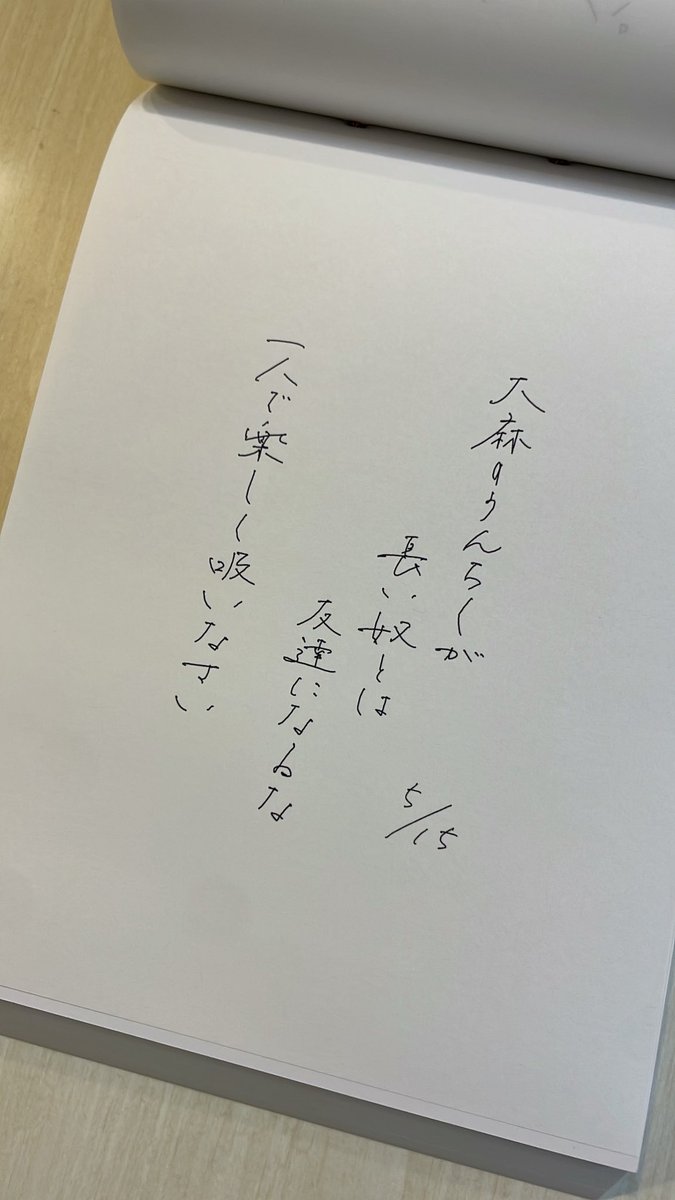 大麻のうんちくが
長い奴とは
友達になるな
一人で楽しく吸いなさい
5/15